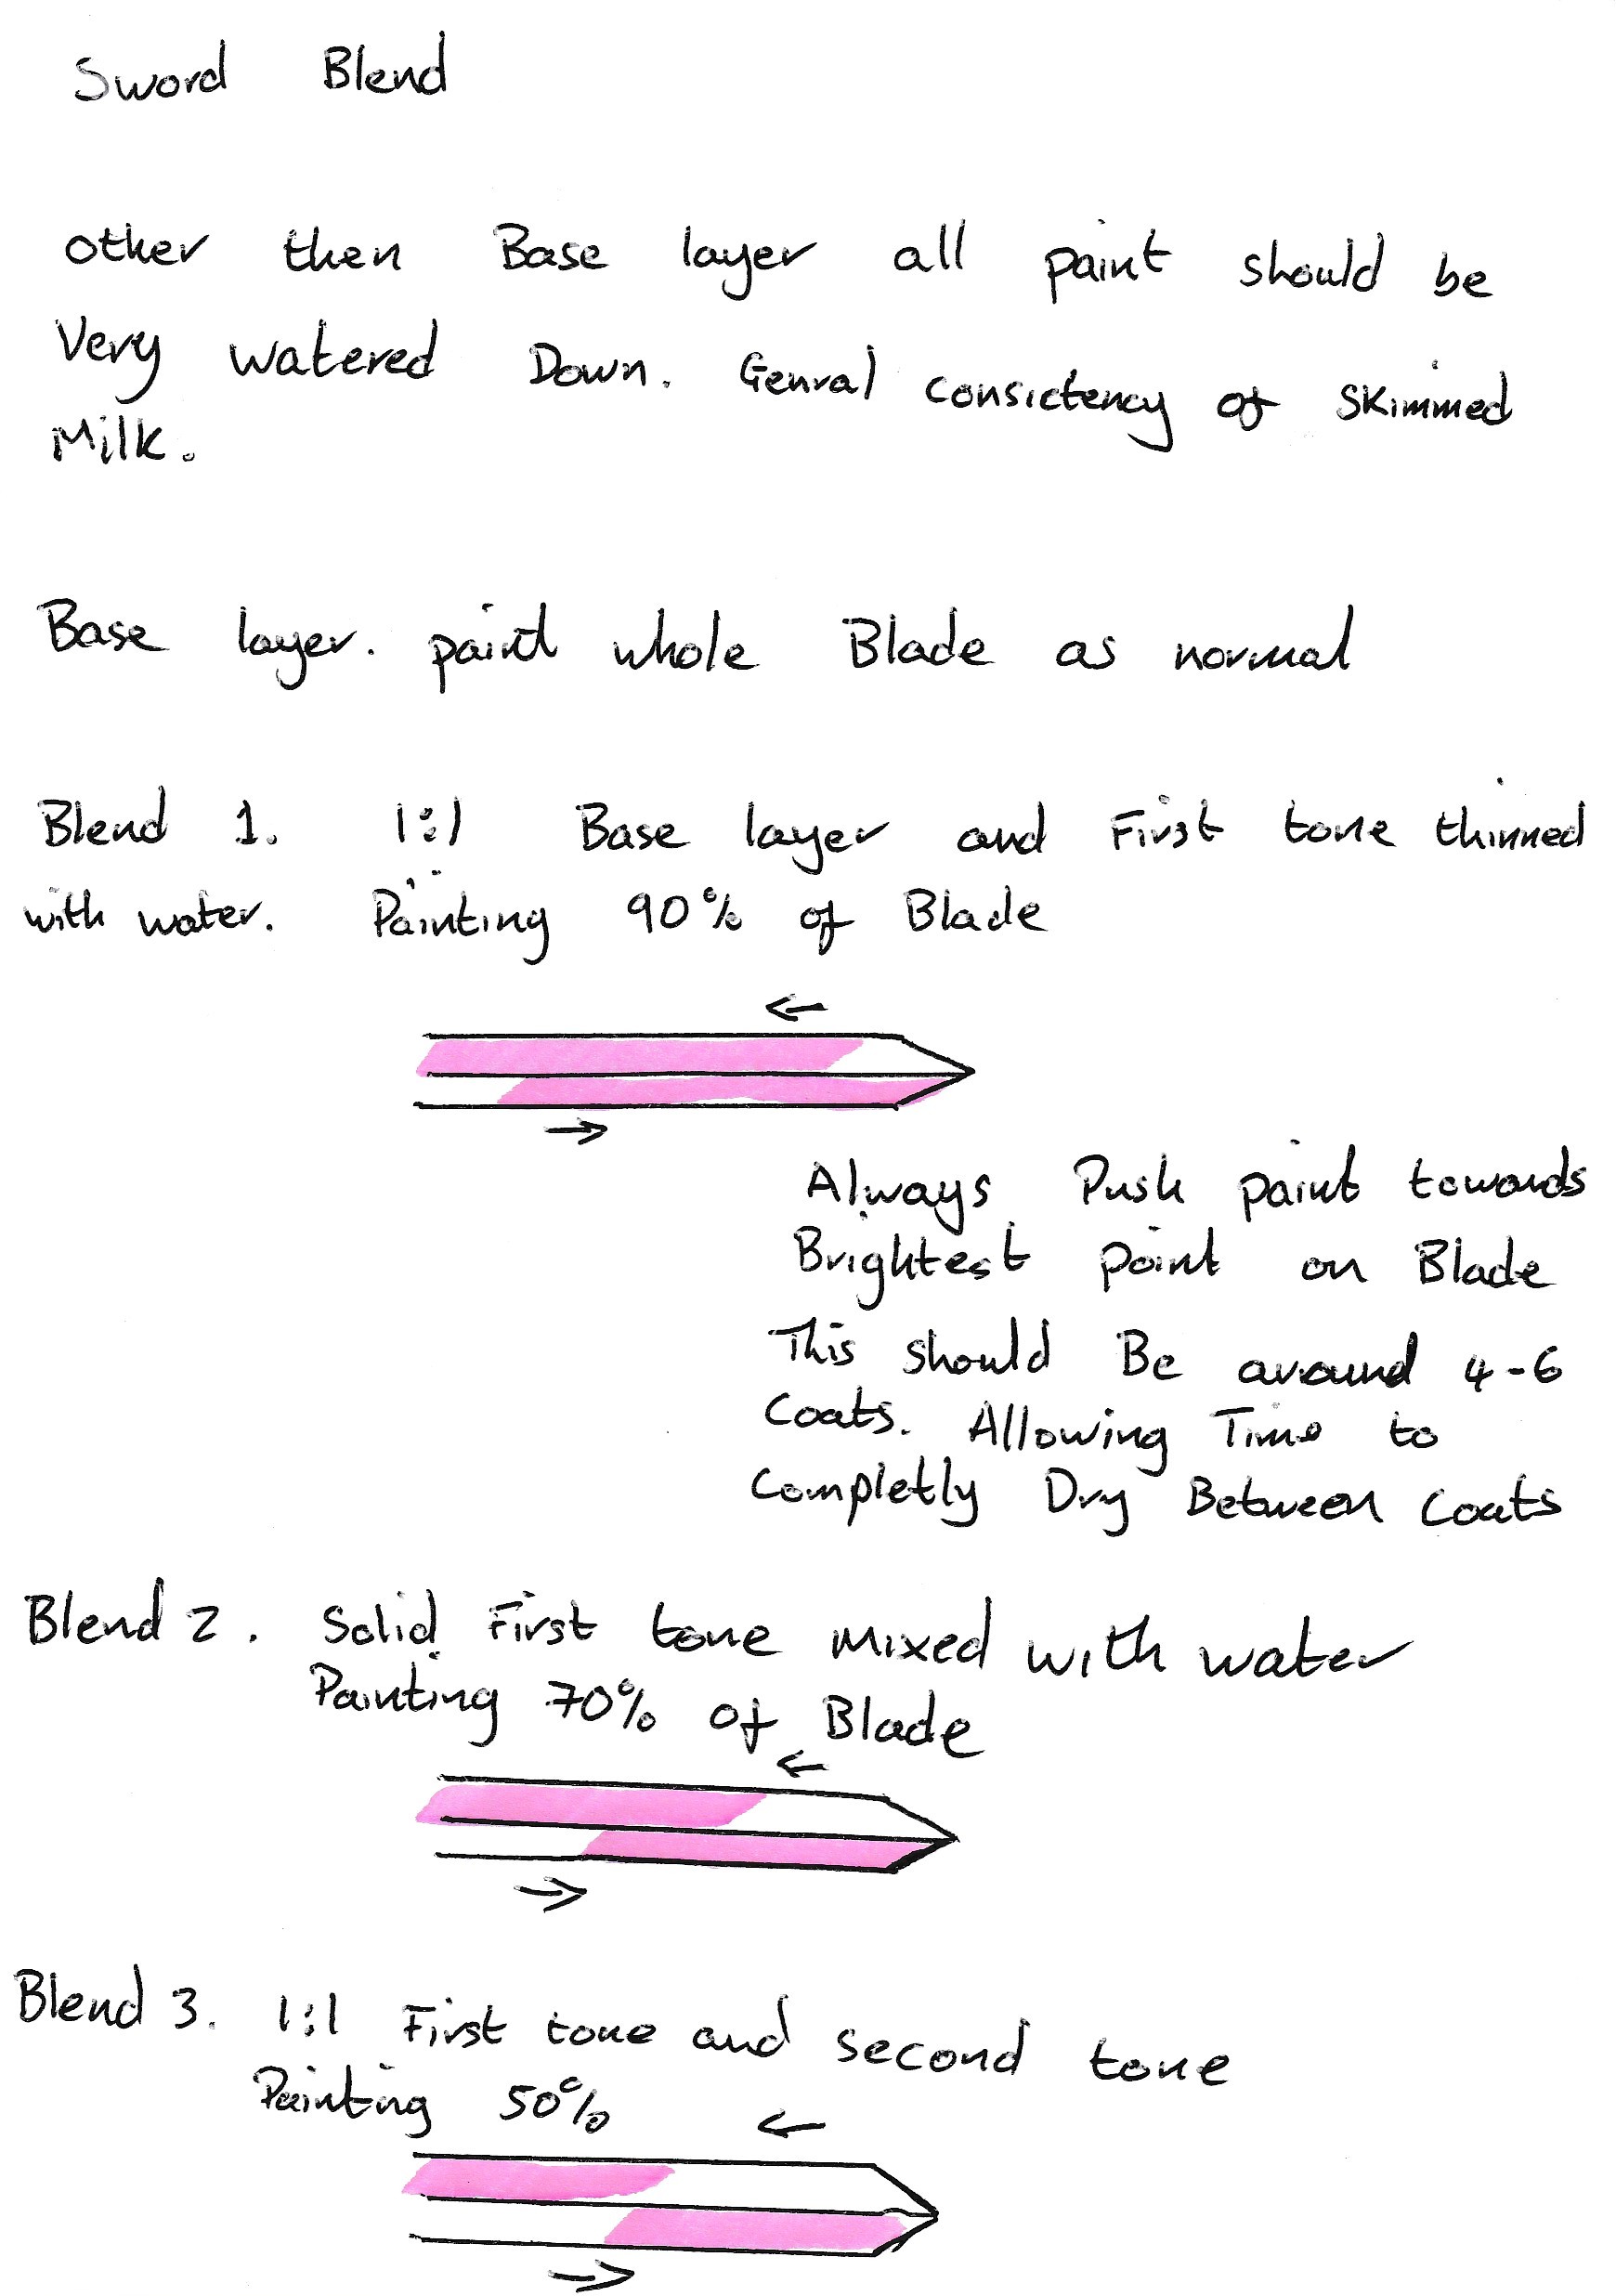 Sword Blend
other then Base layer all paint should be
Very watered Down. Genral consictency of Skimmed
Milk.
Base layer. paint whole Blade as normal
Blend 1. 1:1 Base layer and First tone thinned
with water. Painting 90% of Blade
Always Push paint towards
Brightest point on Blade
This should Be around 4-6
Coats. Allowing Time to
Completly Dry Between Coats
Blend 2. Solid First tone mixed with water
Painting 70% of Blade
Blend 3. 1:1 First tone and second tone
Painting 50%